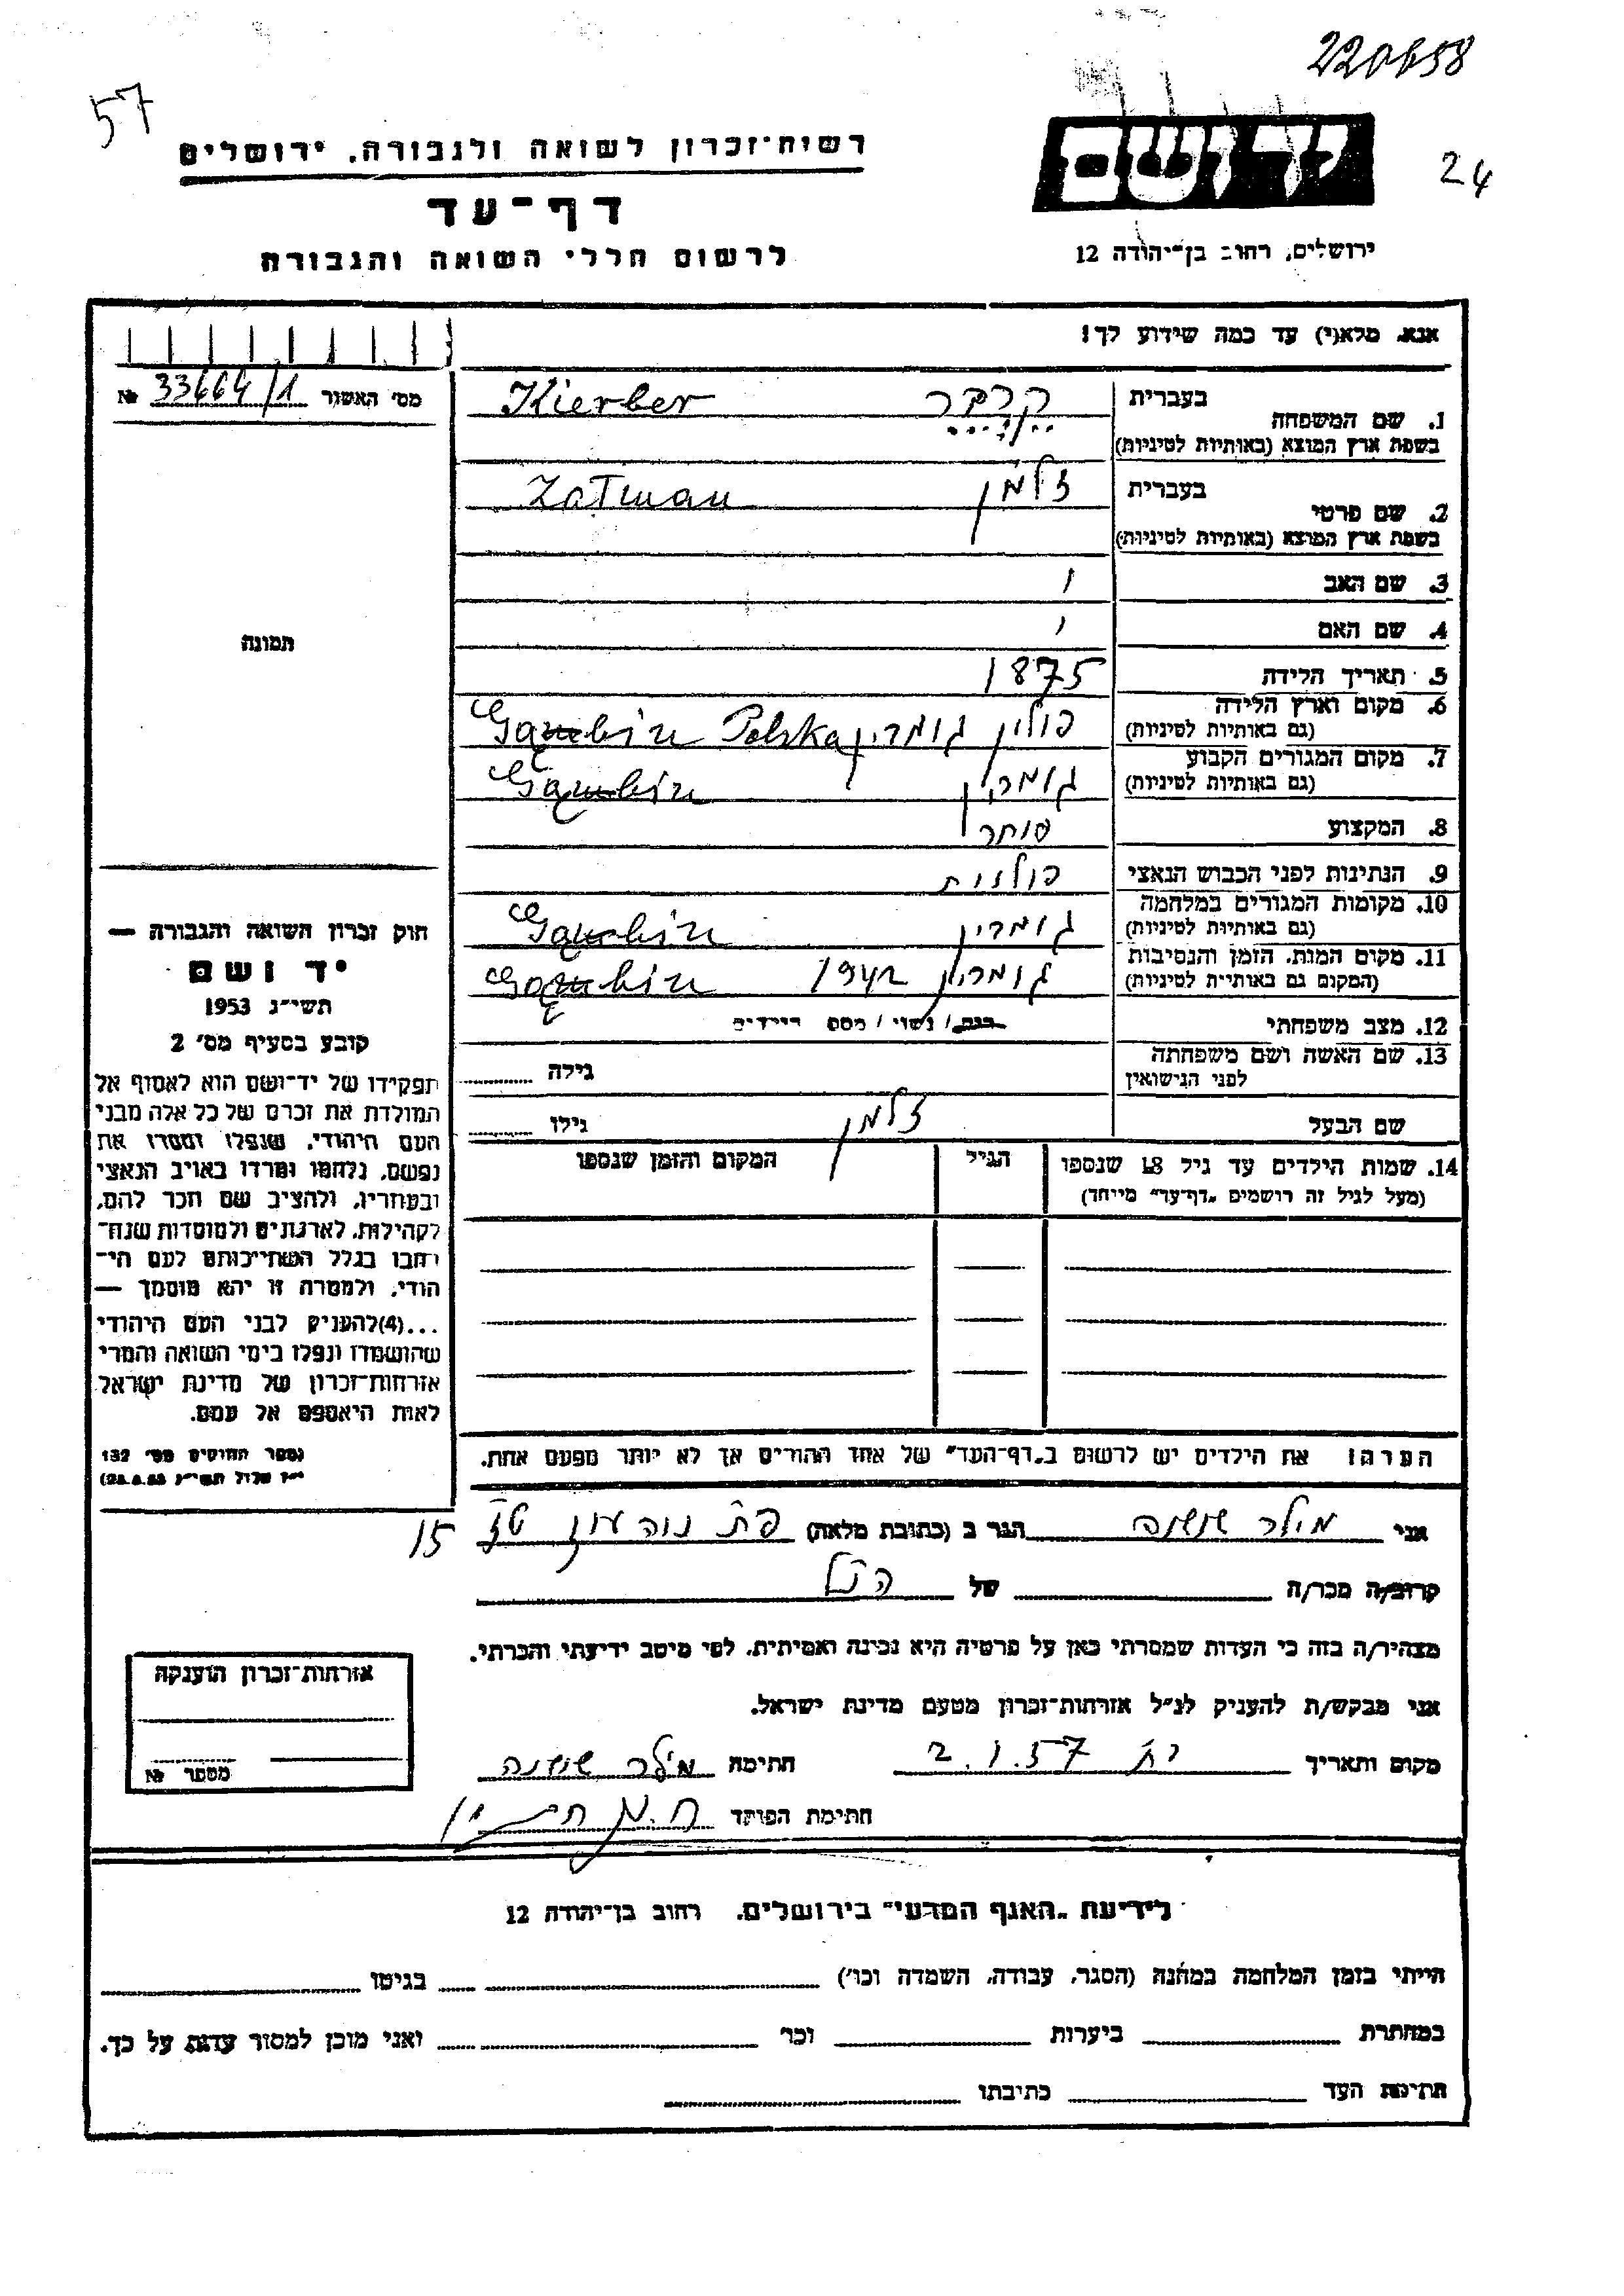 220658
57
24
יד ושם
רשות־זכרון לשואה ולגבורה, ירושלים
דף־עד
לרשום חללי השואה והגבורה
ירושלים, רחוב בן־יהודה 12
אנא, מלא(י) עד כמה שידוע לך!
מס׳ האשור 33664/1 №
1. שם המשפחה
בעברית
קרבר Kierber
בשפת ארץ המוצא (באותיות לטיניות)
2. שם פרטי
בעברית
זלמן Zalman
בשפת ארץ המוצא (באותיות לטיניות)
3. שם האב
4. שם האם
5. תאריך הלידה 1875
6. מקום וארץ הלידה
(גם באותיות לטיניות)
פולין גומבין Polska Gąmbin
7. מקום המגורים הקבוע
(גם באותיות לטיניות)
גומבין Gąmbin
8. המקצוע סוחר
9. הנתינות לפני הכבוש הנאצי פולנית
10. מקומות המגורים במלחמה
(גם באותיות לטיניות)
גומבין Gąmbin
11. מקום המות, הזמן והנסיבות
(המקום גם באותיות לטיניות)
גומבין 1942 Gąmbin
12. מצב משפחתי
נשוי / מספר הילדים
13. שם האשה ושם משפחתה
לפני הנישואין
גילה
שם הבעל זלמן גילו
14. שמות הילדים עד גיל 18 שנספו
(מעל לגיל זה רושמים „דף־עד״ מייחד)
הגיל
המקום והזמן שנספו
הערה: את הילדים יש לרשום ב„דף־העד״ של אחד ההורים אך לא יותר מפעם אחת.
תמונה
חוק זכרון השואה והגבורה —
יד ושם
תשי״ג 1953
קובע בסעיף מס׳ 2
תפקידו של יד־ושם הוא לאסוף אל
המולדת את זכרם של כל אלה מבני
העם היהודי, שנפלו ומסרו את
נפשם, נלחמו ומרדו באויב הנאצי
ובעוזריו, ולהציב שם וזכר להם,
לקהילות, לארגונים ולמוסדות שנח־
רבו בגלל השתייכותם לעם הי־
הודי, ולמטרה זו יהא מוסמך —
...(4)להעניק לבני העם היהודי
שהושמדו ונפלו בימי השואה והמרי
אזרחות־זכרון של מדינת ישראל
לאות היאספם אל עמם.
(ספר החוקים מס׳ 132
י״ז אלול תשי״ג 28.8.53)
אני מילר שושנה הגר ב (כתובת מלאה) פת נוה עוז 15
קרוב/ה מכר/ה של הנ״ל
מצהיר/ה בזה כי העדות שמסרתי כאן על פרטיה היא נכונה ואמיתית, לפי מיטב ידיעתי והכרתי.
אני מבקש/ת להעניק לנ״ל אזרחות־זכרון מטעם מדינת ישראל.
מקום ותאריך 2.1.57 חתימה מילר שושנה
חתימת הפוקד
אזרחות־זכרון הוענקה
מספר №
לידיעת „האגף המדעי״ בירושלים, רחוב בן־יהודה 12
הייתי בזמן המלחמה במחנה (הסגר, עבודה, השמדה וכו׳) בגיטו
במחתרת ביערות וכו׳ ואני מוכן למסור עדות על כך.
חתימת העד כתיבתו